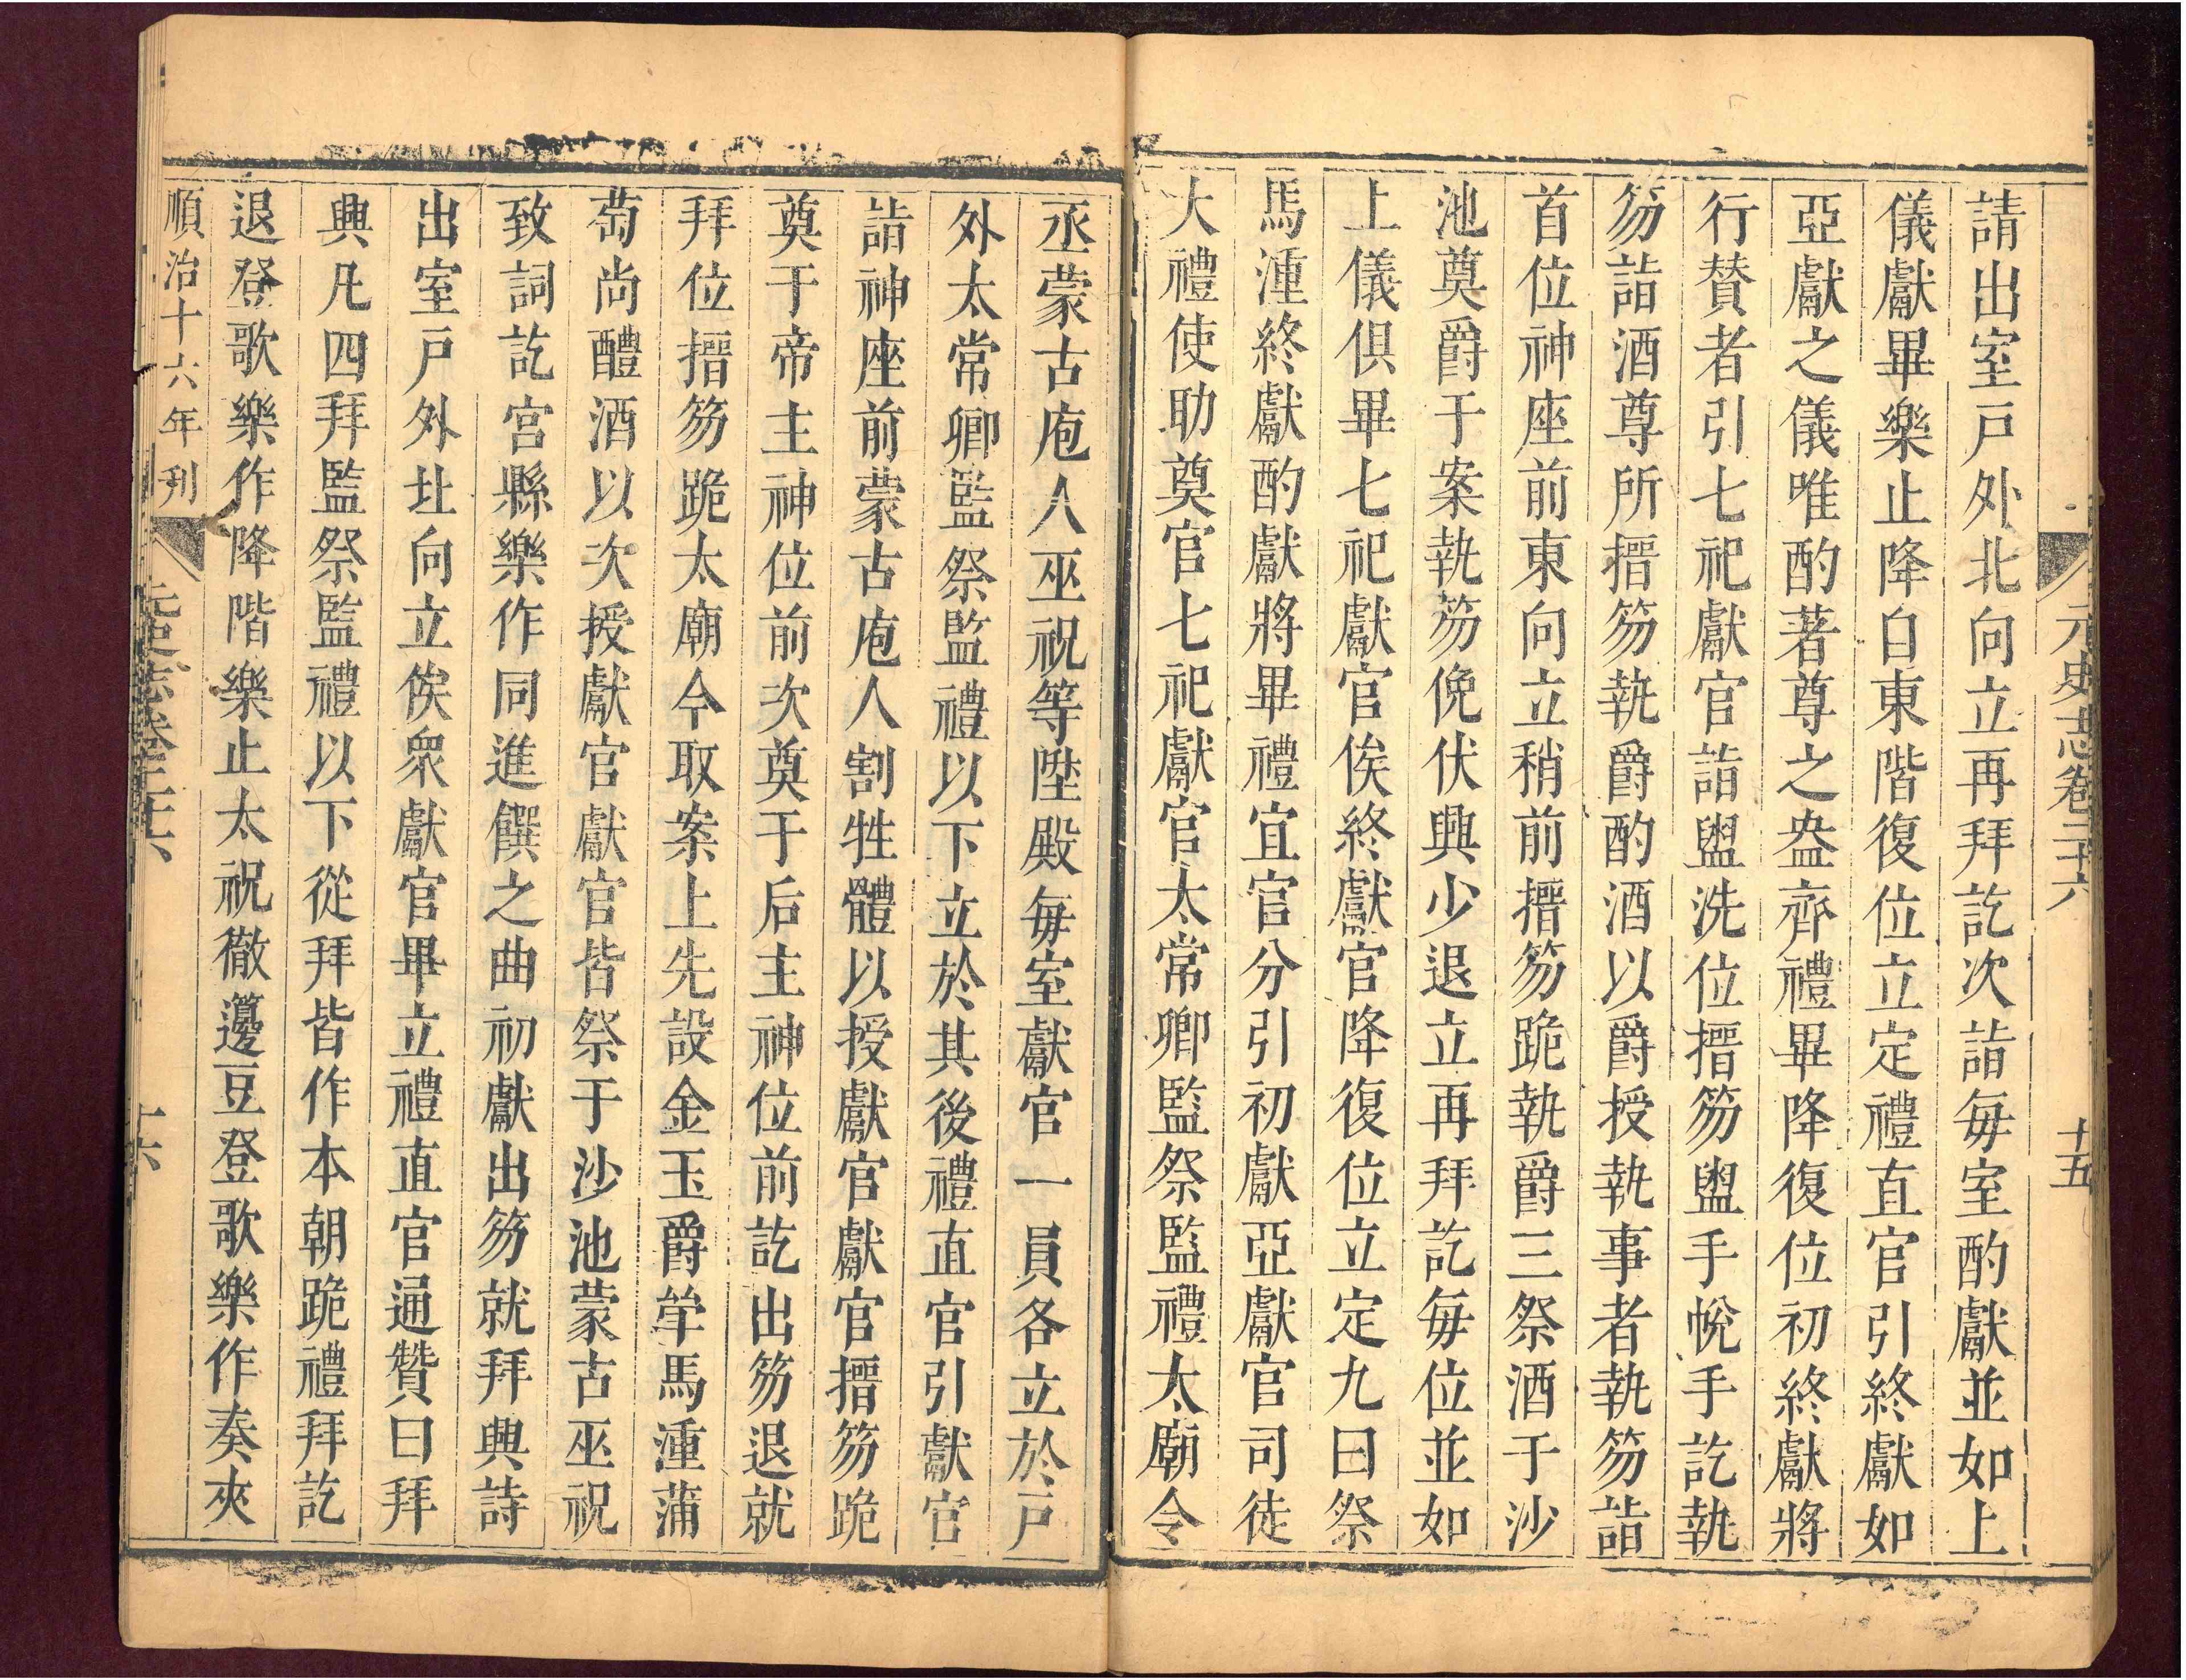 元史志卷二十六
十五
請出室戸外北向立再拜訖次詣每室酌獻並如上
儀獻畢樂止降自東階復位立定禮直官引終獻如
亞獻之儀唯酌著尊之盎齊禮畢降復位初終獻將
行賛者引七祀獻官詣盥洗位搢笏盥手帨手訖執
笏詣酒尊所搢笏執爵酌酒以爵授執事者執笏詣
首位神座前東向立稍前搢笏跪執爵三祭酒于沙
池奠爵于案執笏俛伏興少退立再拜訖每位並如
上儀俱畢七祀獻官俟終獻官降復位立定九曰祭
馬湩終獻酌獻將畢禮宜官分引初獻亞獻官司徒
大禮使助奠官七祀獻官太常卿監祭監禮太廟令
丞蒙古庖人巫祝等陞殿每室獻官一員各立於戸
外太常卿監祭監禮以下立於其後禮直官引獻官
詣神座前蒙古庖人割牲體以授獻官獻官搢笏跪
奠于帝主神位前次奠于后主神位前訖出笏退就
拜位搢笏跪太廟令取案上先設金玉爵斝馬湩蒲
萄尚醴酒以次授獻官獻官皆祭于沙池蒙古巫祝
致詞訖宮縣樂作同進饌之曲初獻出笏就拜興詩
出室戸外北向立俟衆獻官畢立禮直官通贊曰拜
興凡四拜監祭監禮以下從拜皆作本朝跪禮拜訖
退登歌樂作降階樂止太祝徹籩豆登歌樂作奏夾
順治十六年刋
元史志卷二十六
十六